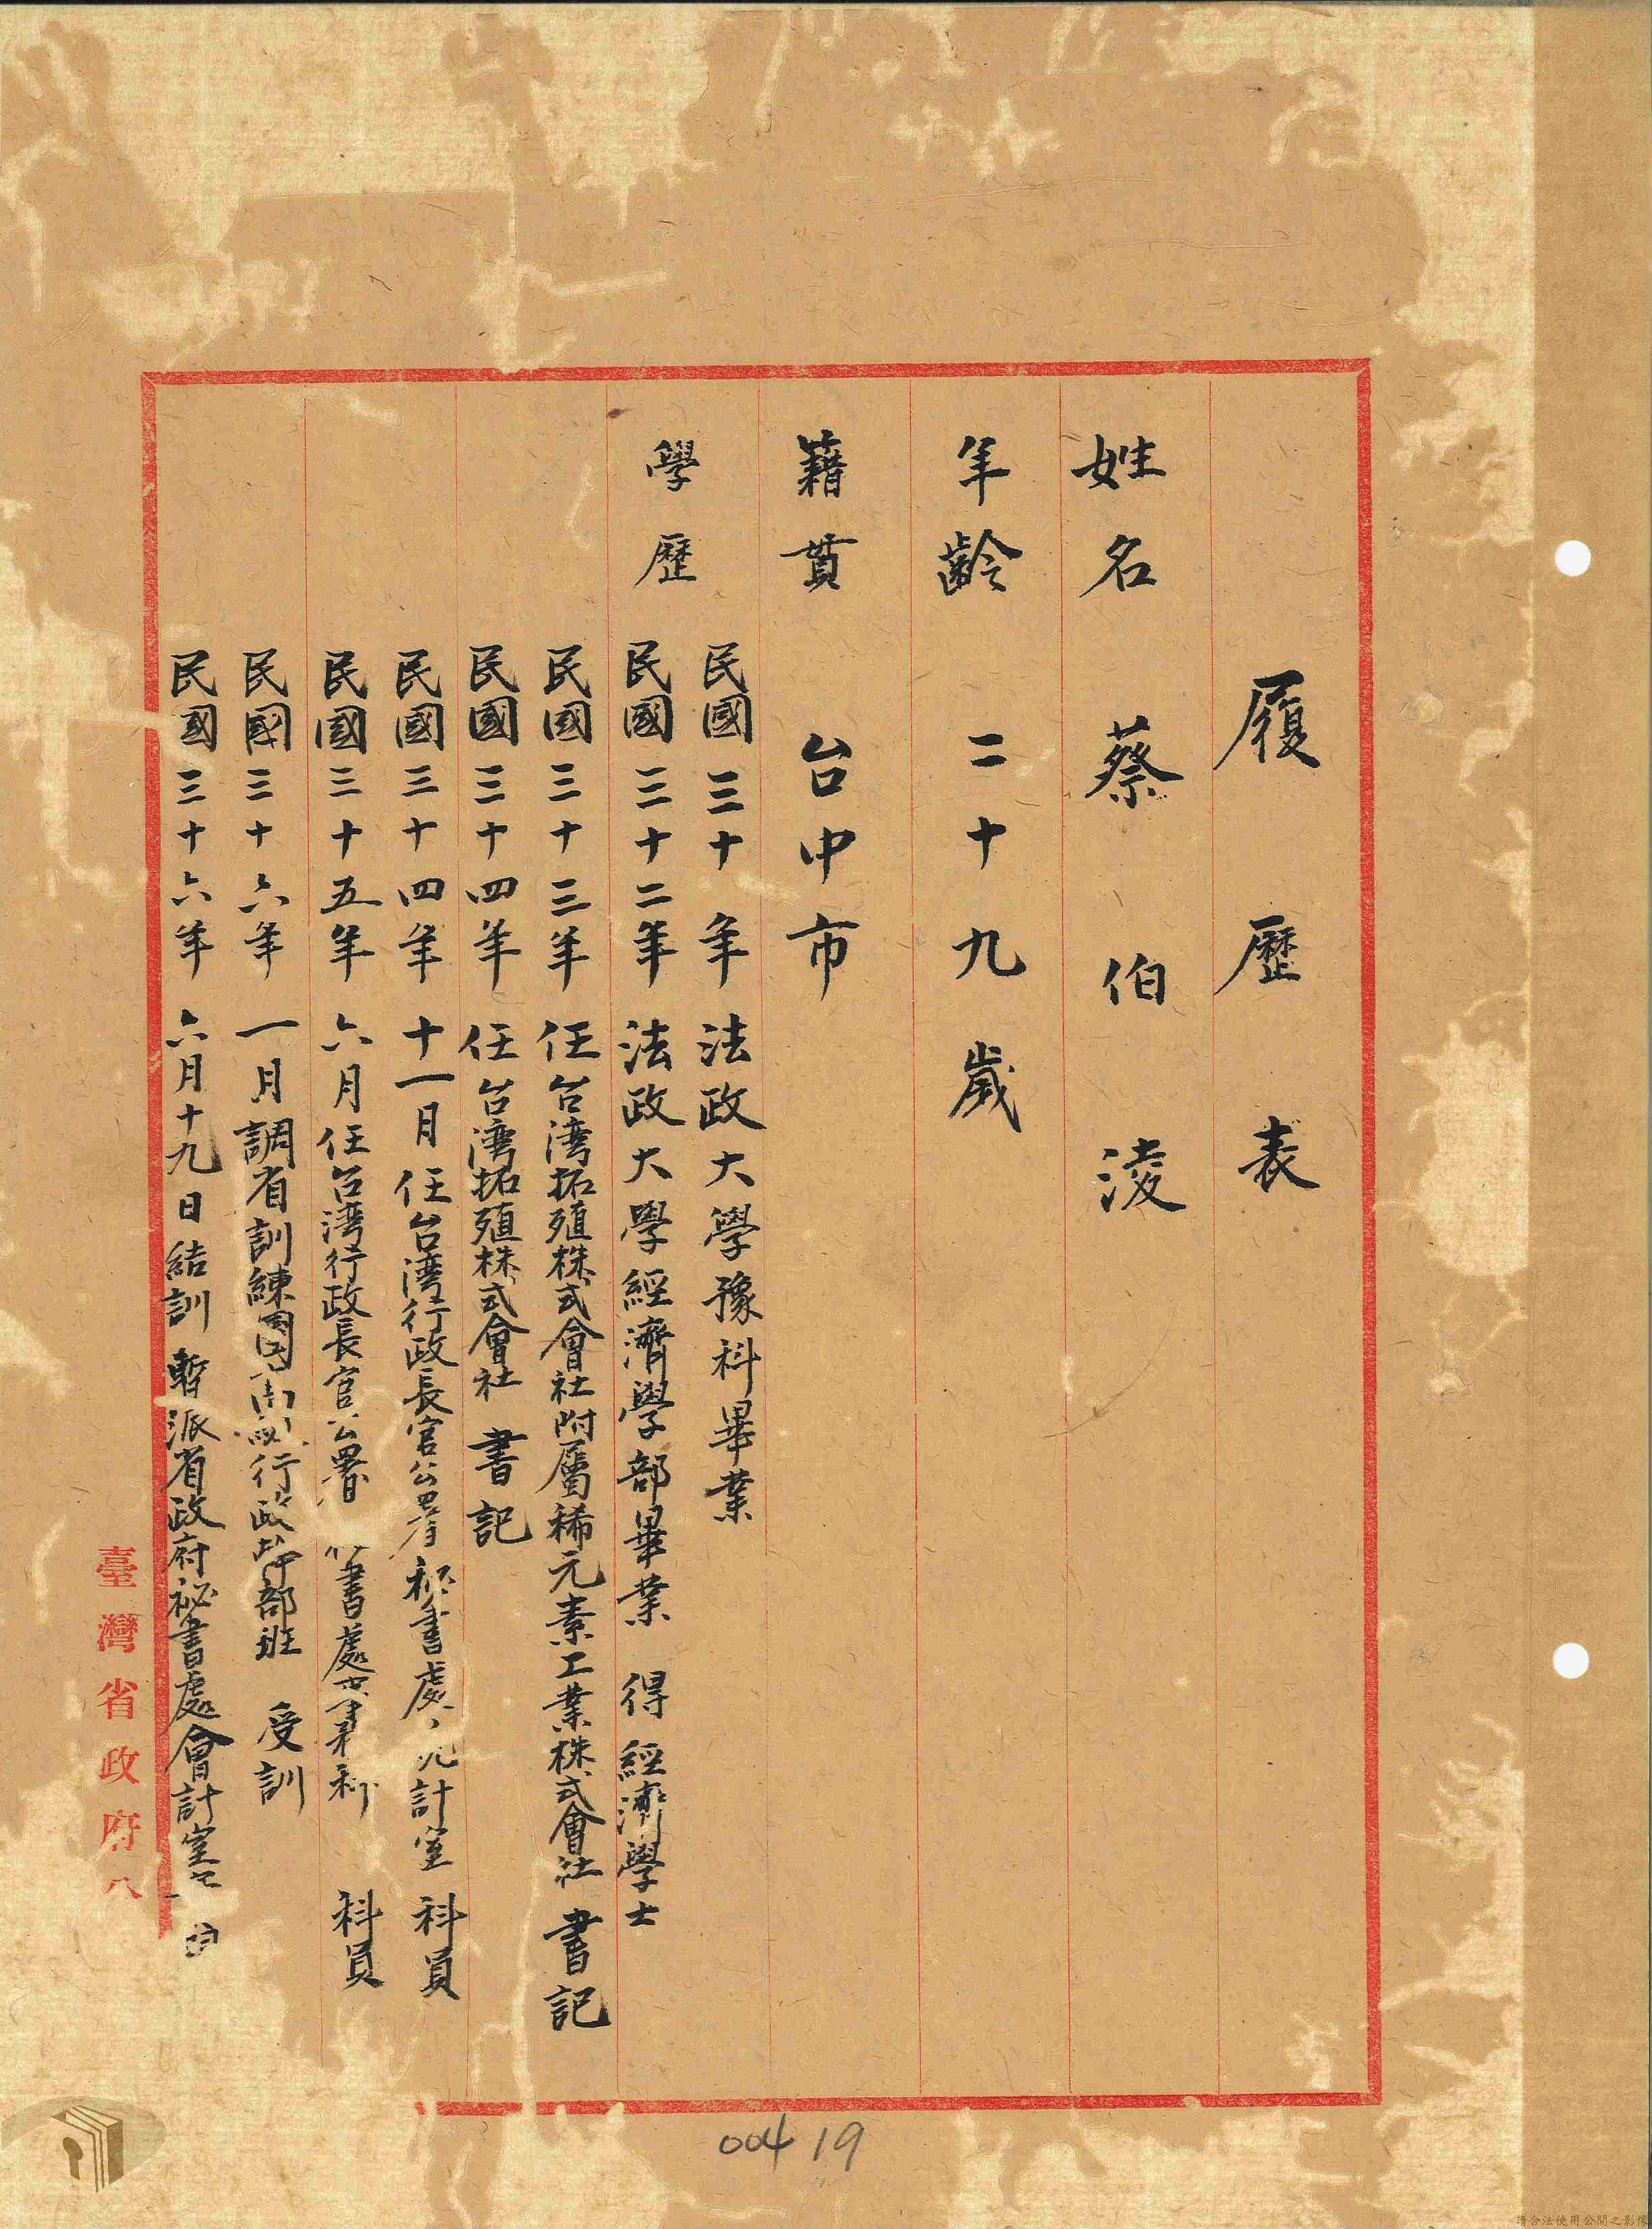 履歷表
姓名 蔡伯淩
年齡 二十九歲
籍貫 台中市
學歷
民國三十年 法政大學豫科畢業
民國三十二年 法政大學經濟學部畢業 得經濟學士
民國三十三年 任台湾拓殖株式會社附屬稀元素工業株式會社 書記
民國三十四年 任台湾拓殖株式會社 書記
民國三十四年 十一月 任台湾行政長官公署秘書處 計室 科員
民國三十五年 六月任台湾行政長官公署 書處 科員
民國三十六年 一月調省訓練團 行政 部班 受訓
民國三十六年 六月十九日結訓 暫派省政府秘書處會計室
臺灣省政府
00419
請合法使用公開之影像